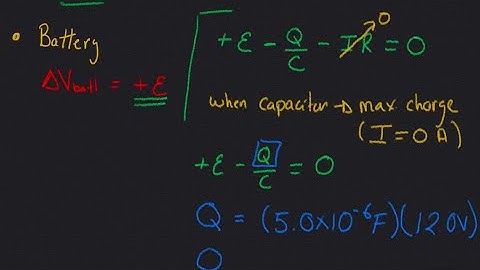 • Battery
ΔVbatt = +ε
+ε - Q/C - IR = 0
0
when capacitor → max charge
(I = 0 A)
+ε - Q/C = 0
Q = (5.0x10⁻⁶F)(12.0V)